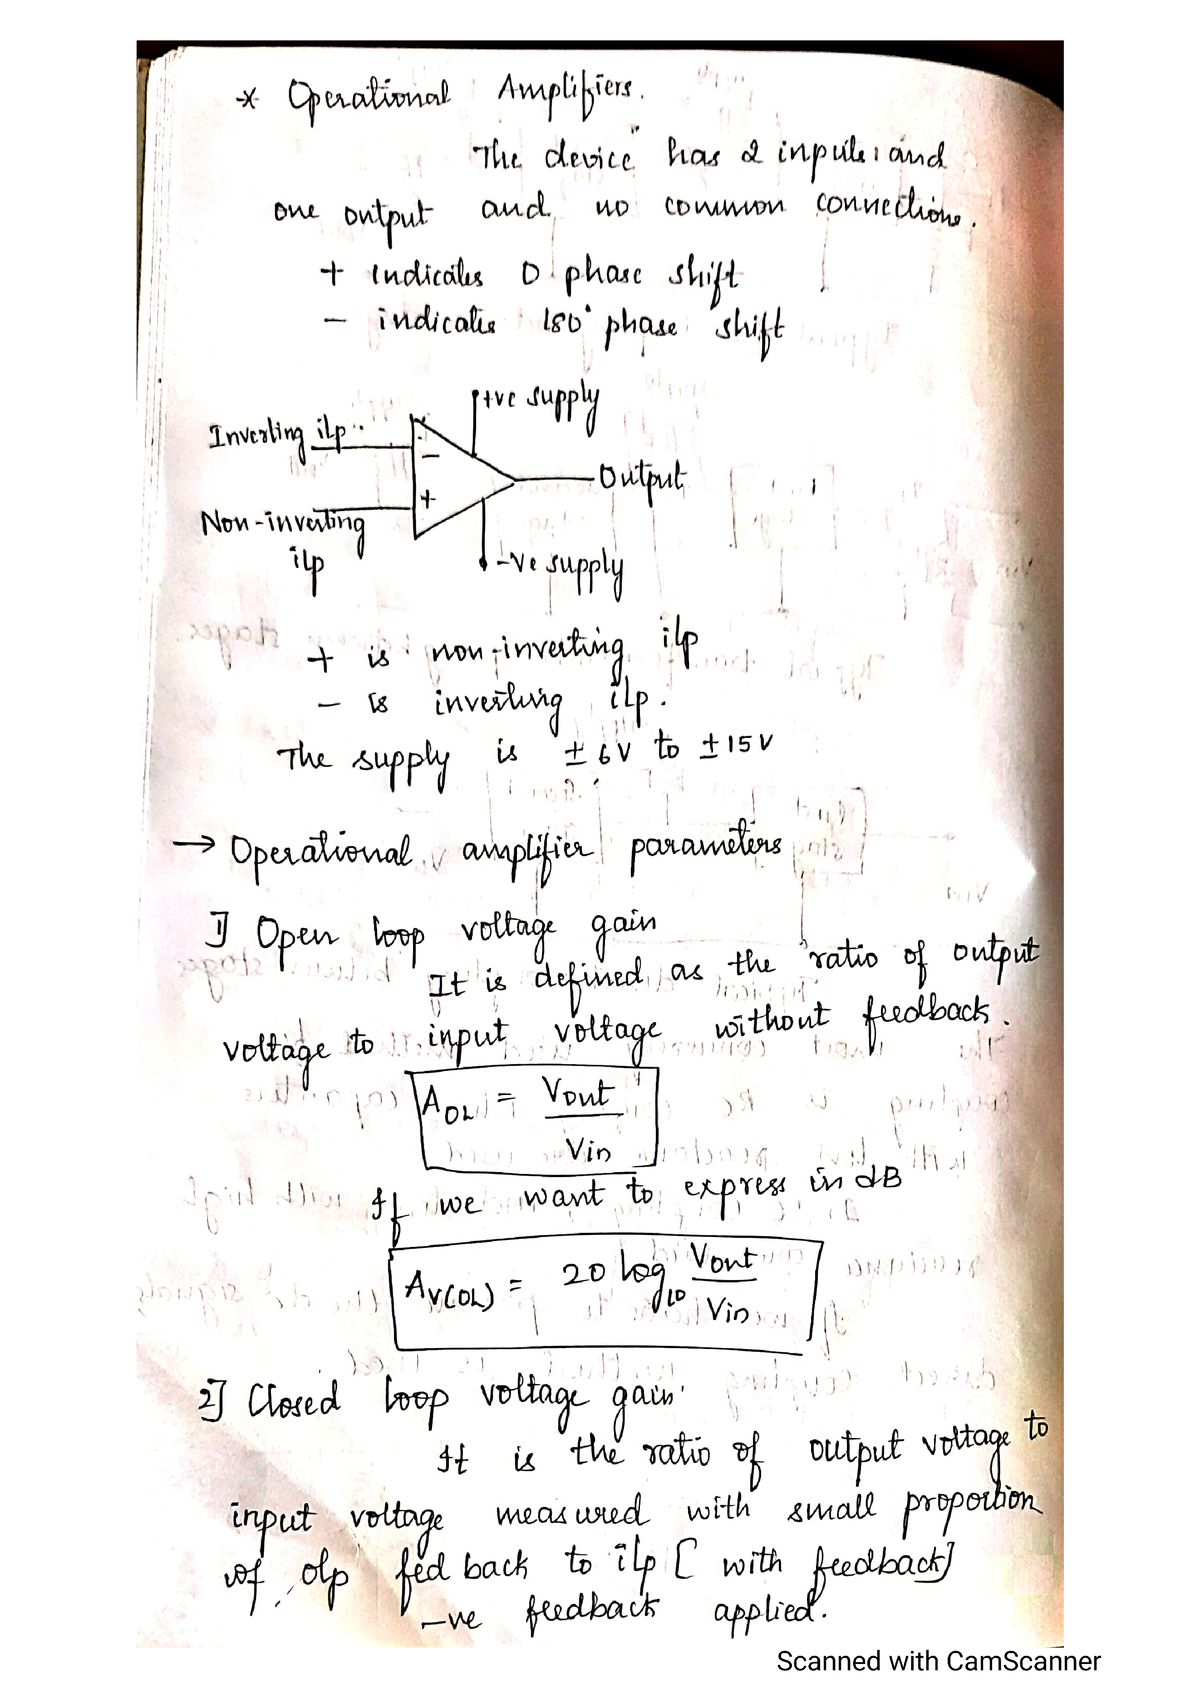 * Operational Amplifiers.
The device has 2 inputs and
one output and no common connections.
+ indicates 0 phase shift
- indicates 180° phase shift
+ve supply
Inverting i/p
-
Output
+
Non-inverting
i/p
-ve supply
+ is non-inverting i/p
- is inverting i/p.
The supply is ± 6V to ±15V
→ Operational amplifier parameters
1] Open loop voltage gain
It is defined as the ratio of output
voltage to input voltage without feedback.
A_OL = Vout / Vin
If we want to express in dB
Av(OL) = 20 log₁₀ Vout / Vin
2] Closed loop voltage gain.
It is the ratio of output voltage to
input voltage measured with small proportion
of o/p fed back to i/p [ with feedback]
-ve feedback applied.
Scanned with CamScanner